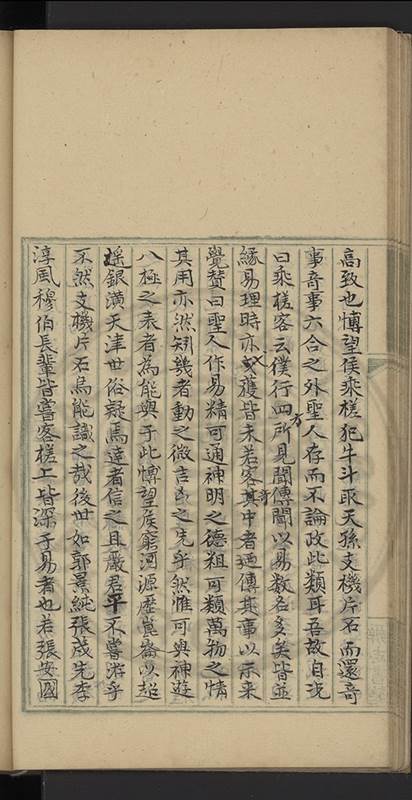 高致也博望侯乘槎犯牛斗取天孫支機片石而還奇
事奇事六合之外聖人存而不論政此類耳吾故自況
曰乘槎客云僕行四方所見聞傳聞以易數名多矣皆並
緣易理時亦或獲皆未若客其中者奇迺傳其事以示來
覺贊曰聖人作易精可通神明之德粗可類萬物之情
其用亦然知幾者動之微吉凶之先乎然惟可與神遊
八極之表者為能與于此博望侯窮河源歷崑崙以超
遙銀潢天津世俗疑焉達者信之且嚴君平不嘗游乎
不然支機片石烏能識之哉後世如郭景純張茂先李
淳風穆伯長輩皆嘗客槎上皆深于易者也若張安國